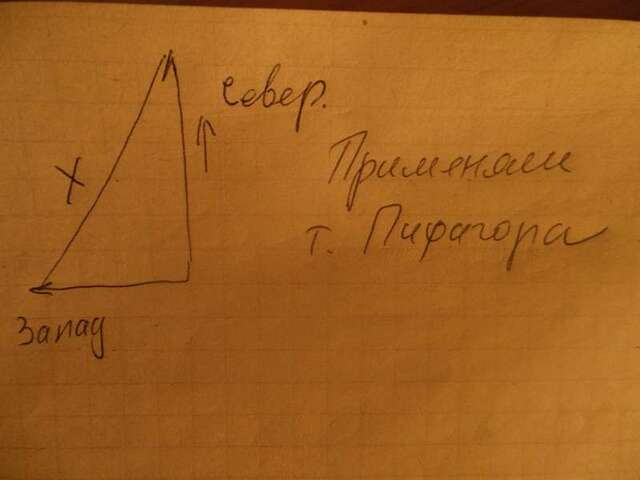 Север.
Х
Применяем
т. Пифагора
Запад